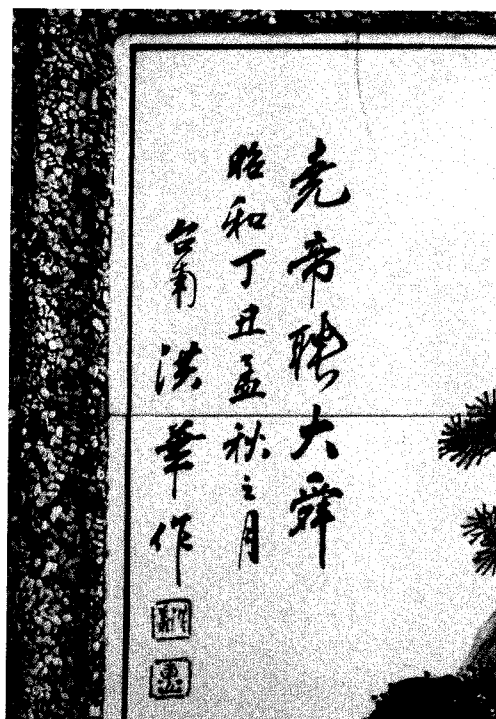 堯帝聘大舜
昭和丁丑孟秋之月
台南 洪華作